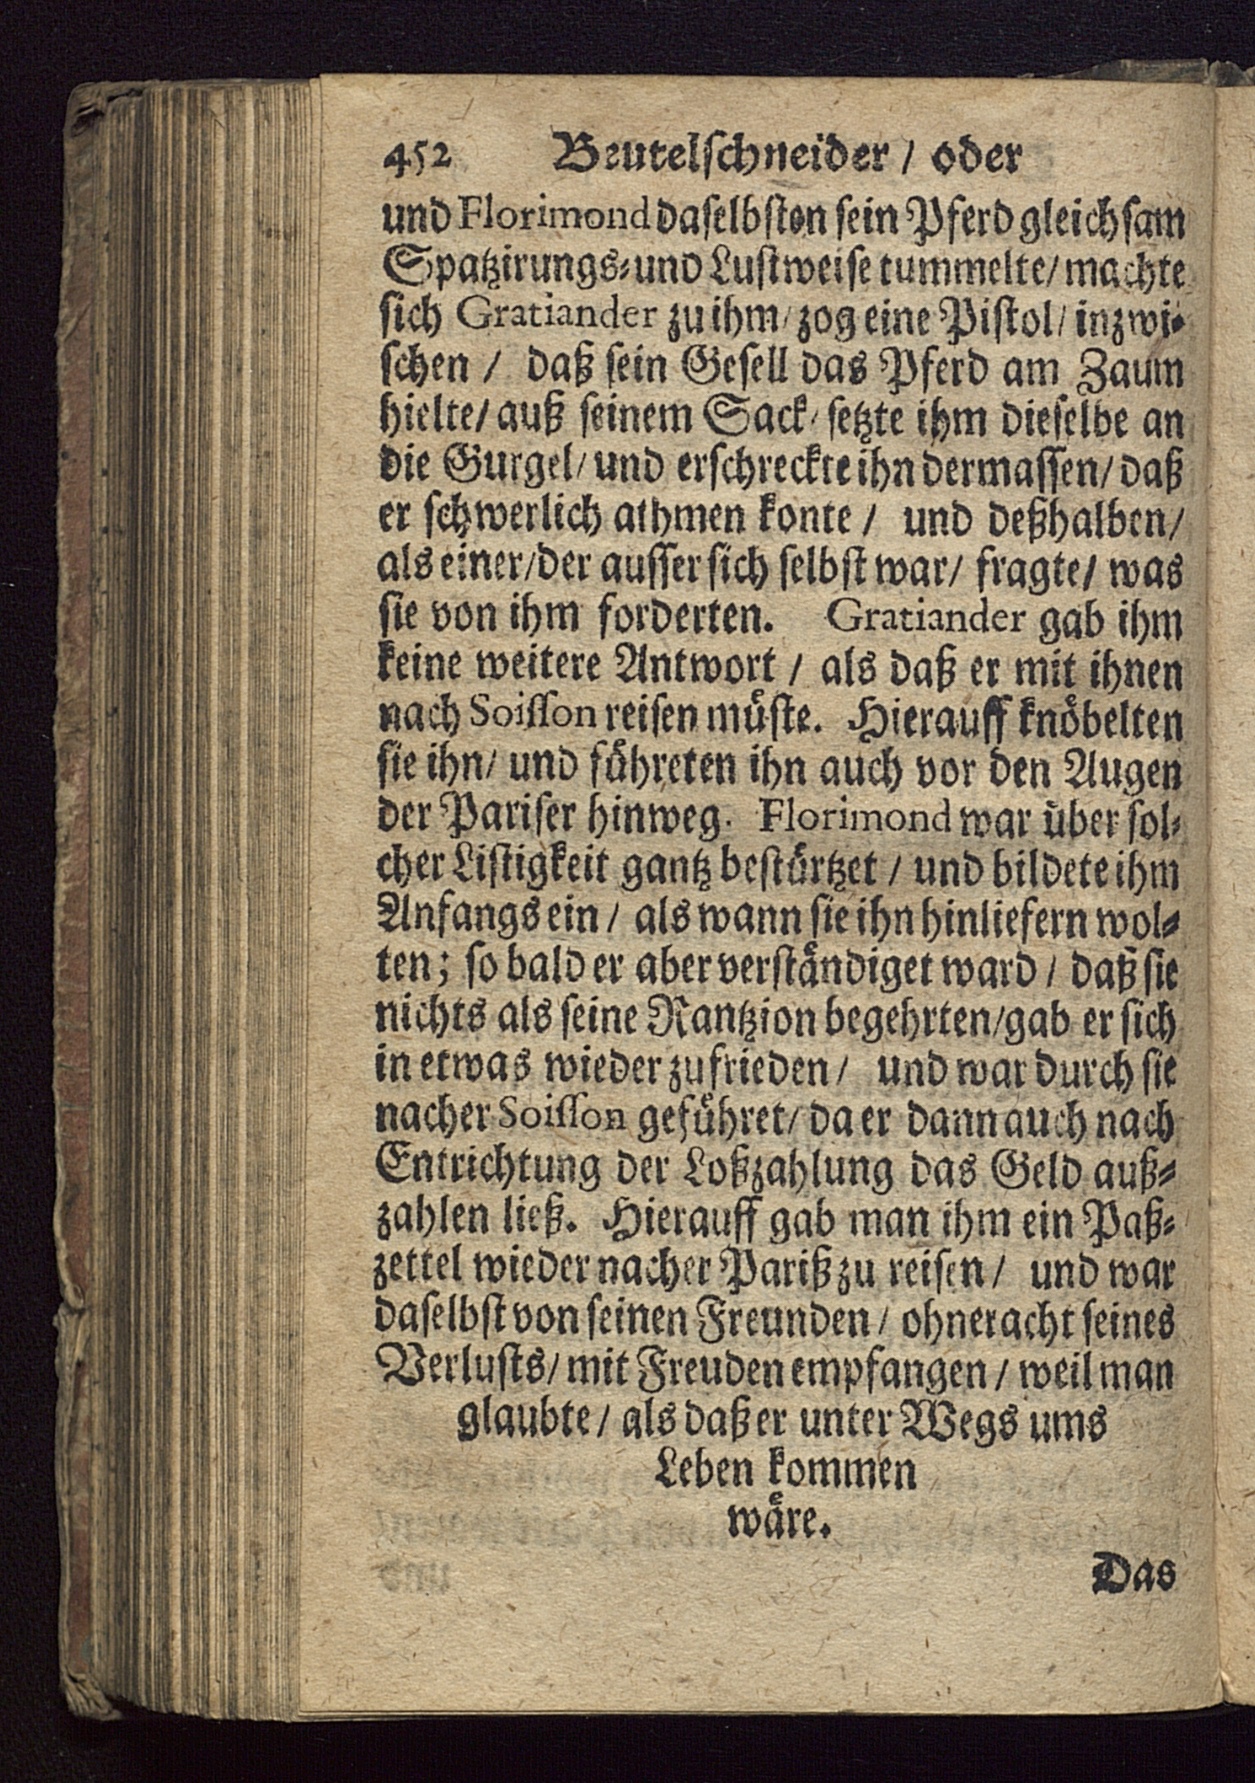 452 Beutelschneider / oder
und Florimond daselbsten sein Pferd gleichsam
Spatzirungs-und Lustweise tummelte/ machte
sich Gratiander zu ihm/ zog eine Pistol/ inzwi-
schen / daß sein Gesell das Pferd am Zaum
hielte/ auß seinem Sack/ setzte ihm dieselbe an
die Gurgel/ und erschreckte ihn dermassen/ daß
er schwerlich athmen konte / und deßhalben/
als einer/der ausser sich selbst war/ fragte/ was
sie von ihm forderten. Gratiander gab ihm
keine weitere Antwort / als daß er mit ihnen
nach Soisson reisen müste. Hierauff knöbelten
sie ihn/ und führeten ihn auch vor den Augen
der Pariser hinweg. Florimond war über sol-
cher Listigkeit gantz bestürtzet / und bildete ihm
Anfangs ein / als wann sie ihn hinliefern wol-
ten; so bald er aber verständiget ward / daß sie
nichts als seine Rantzion begehrten/gab er sich
in etwas wieder zufrieden / und war durch sie
nacher Soisson geführet/ da er dann auch nach
Entrichtung der Loßzahlung das Geld auß-
zahlen ließ. Hierauff gab man ihm ein Paß-
zettel wieder nacher Pariß zu reisen / und war
daselbst von seinen Freunden / ohneracht seines
Verlusts/ mit Freuden empfangen / weil man
glaubte / als daß er unter Wegs ums
Leben kommen
wäre.
Das